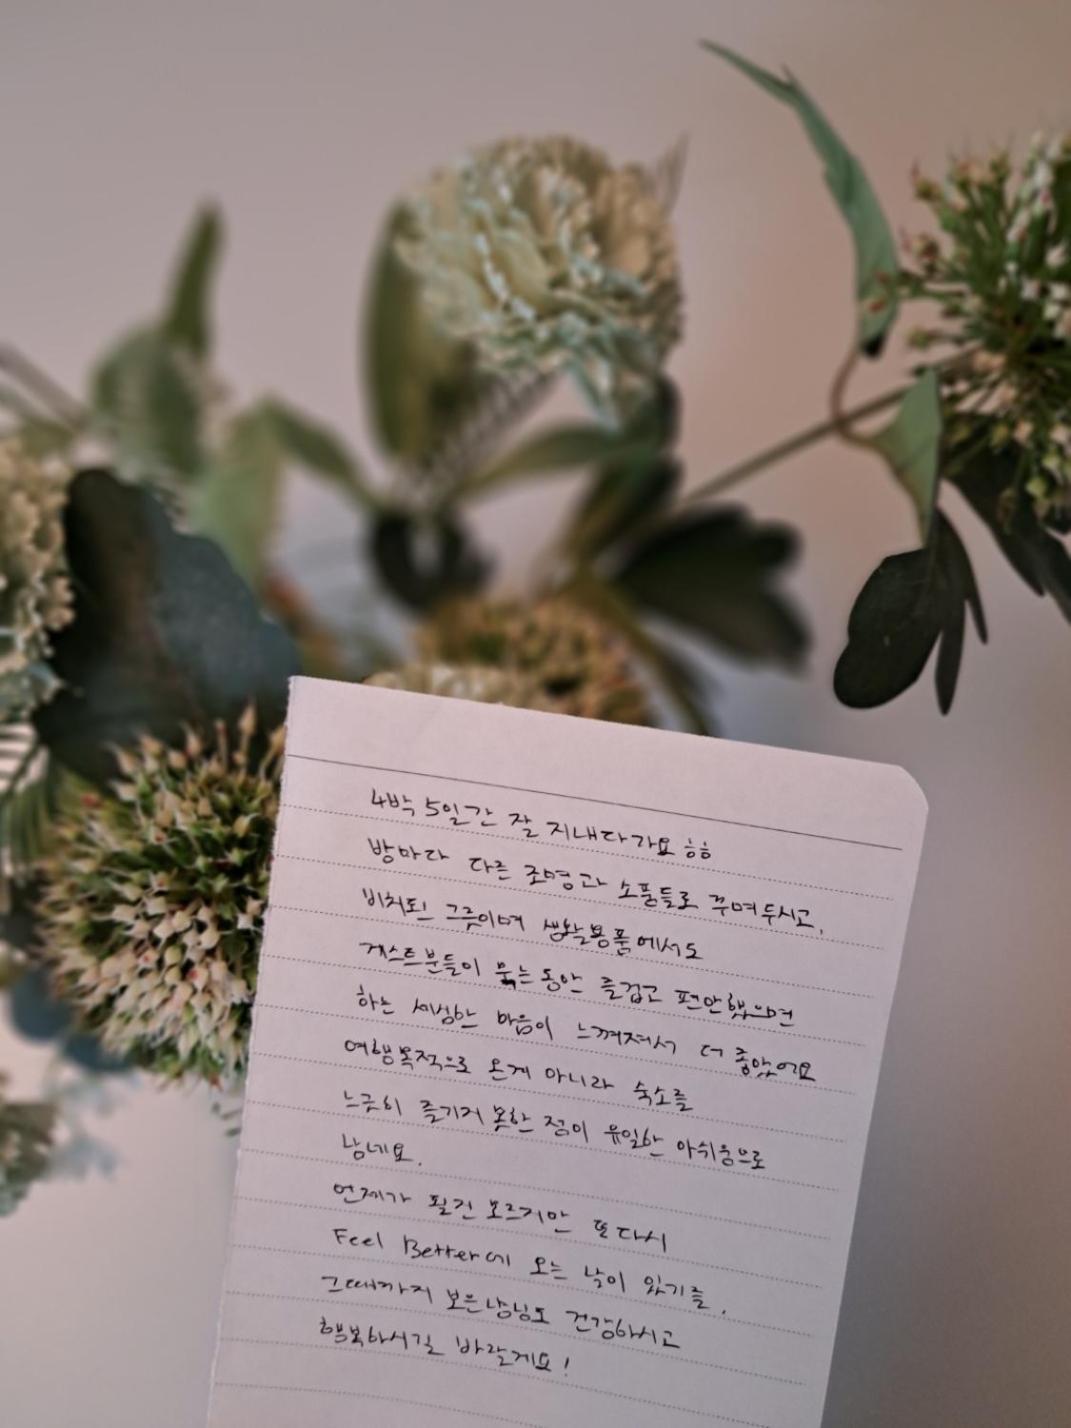 4박 5일간 잘 지내다가요 ㅎㅎ
방마다 다른 조명과 소품들로 꾸며두시고,
비치된 그릇이며 생활용품에서도
게스트분들이 묵는동안 즐겁고 편안했으면
하는 세심한 마음이 느껴져서 더 좋았어요
여행목적으로 온게 아니라 숙소를
느긋히 즐기지 못한 점이 유일한 아쉬움으로
남네요.
언제가 될진 모르지만 또 다시
Feel Better에 오는 날이 있기를.
그때까지 보은님도 건강하시고
행복하시길 바랄게요!